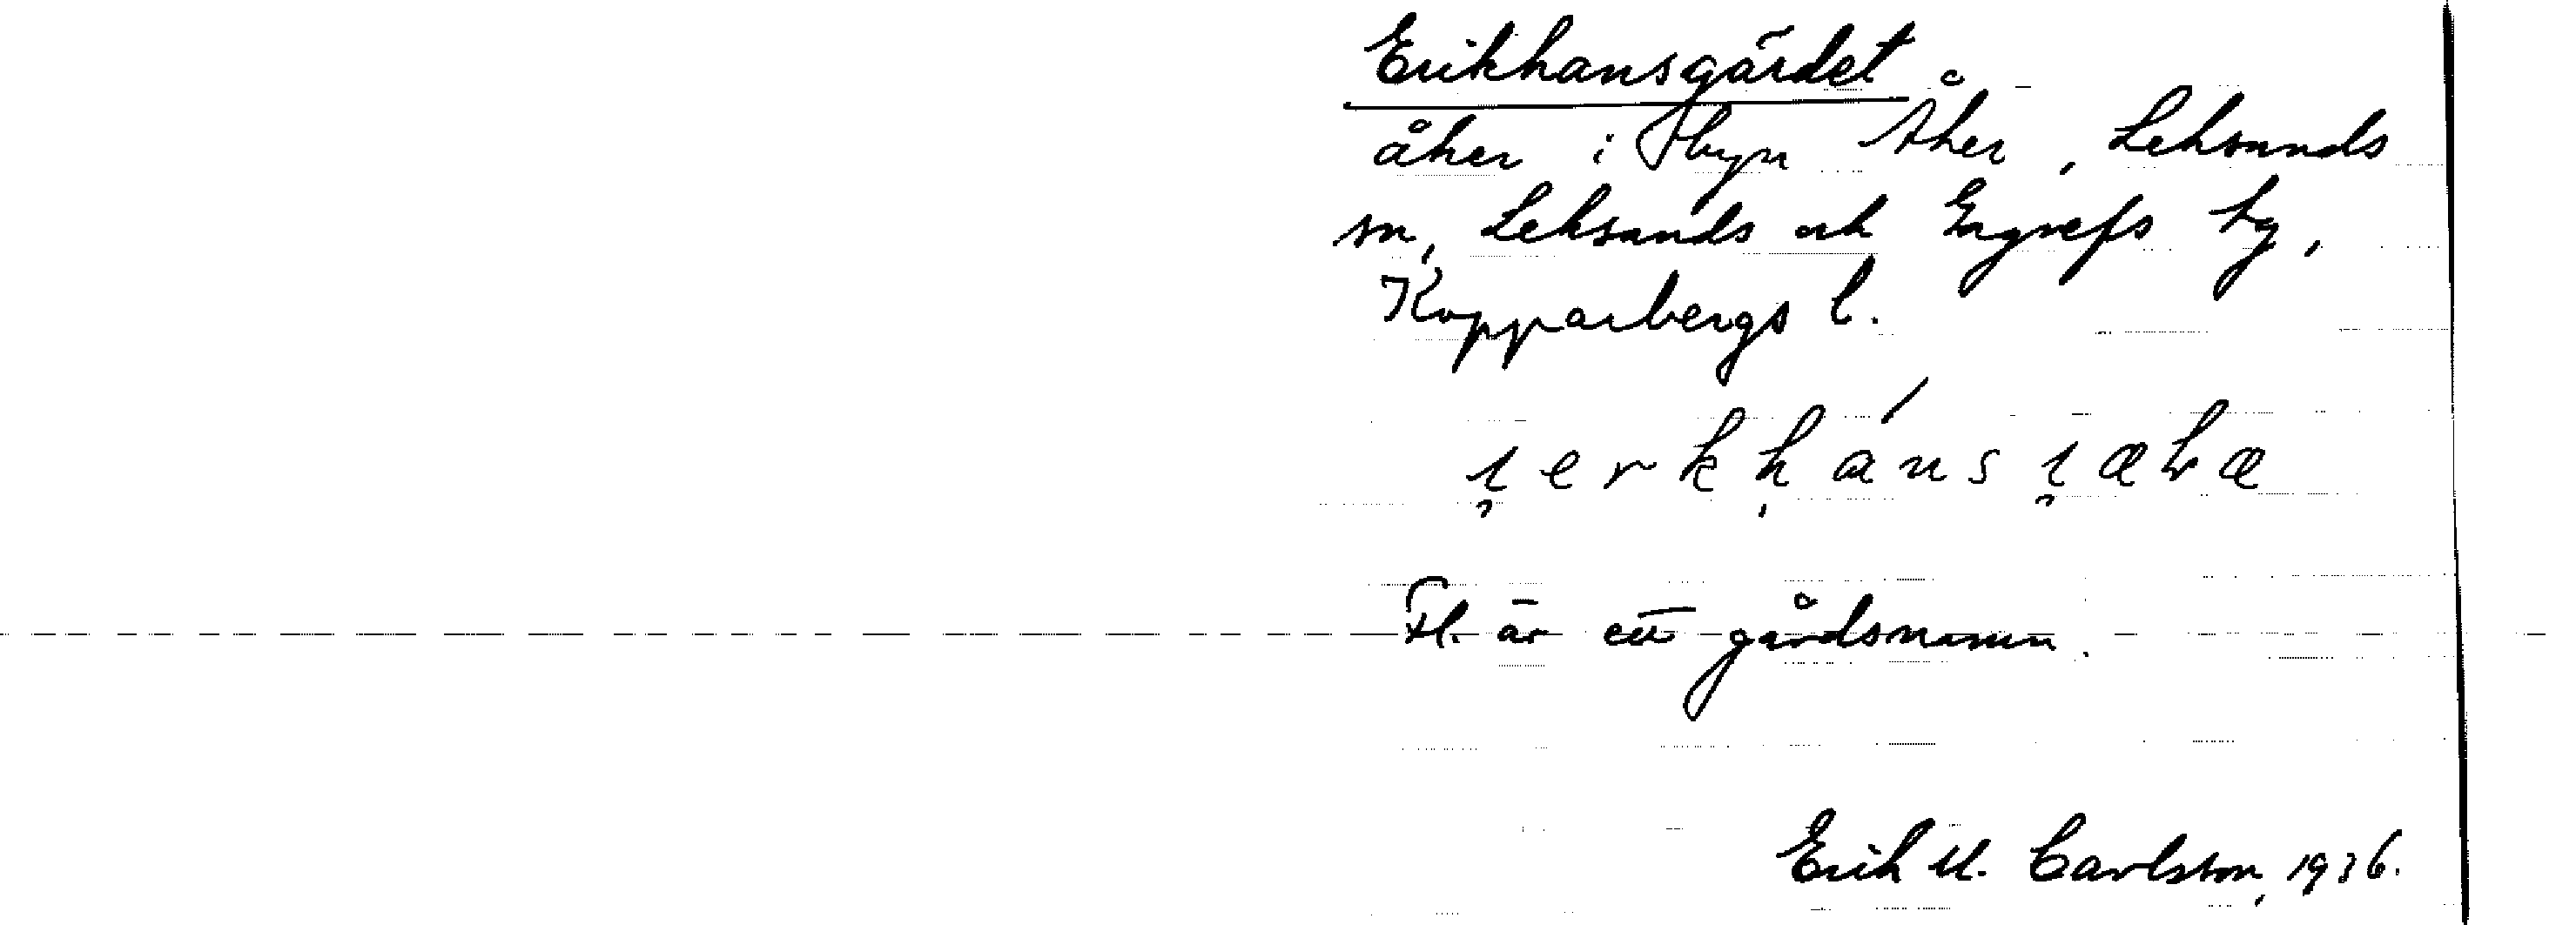 Erikhansgärdet
åker i byn Åker, Leksands
sn, Leksands och Gagnefs tg,
Kopparbergs l.
Fl. är ett gårdsnamn.
Erik U. Carlsson, 1936.